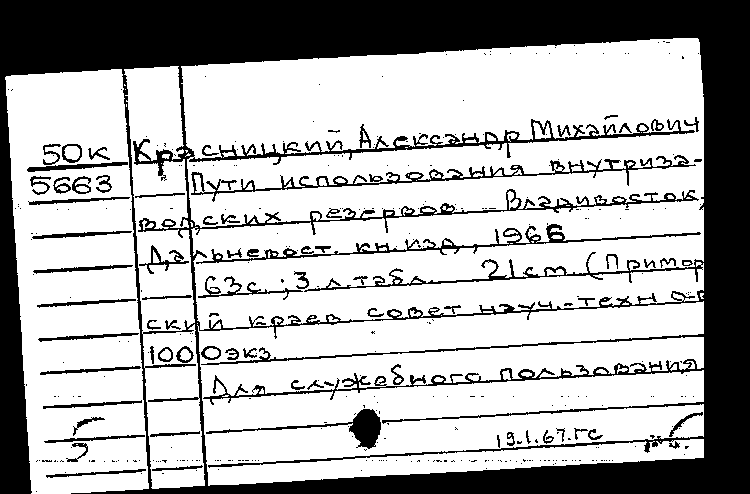 50к Красницкий, Александр Михайлович
5663 Пути использования внутриза-
водских резервов. Владивосток,
Дальневост. кн. изд., 1966
63с.; 3 л. табл. 21 cm. (Примор
ский краев совет науч.-техн о-в
1000 экз
Для служебного пользования
19.1.67.гс